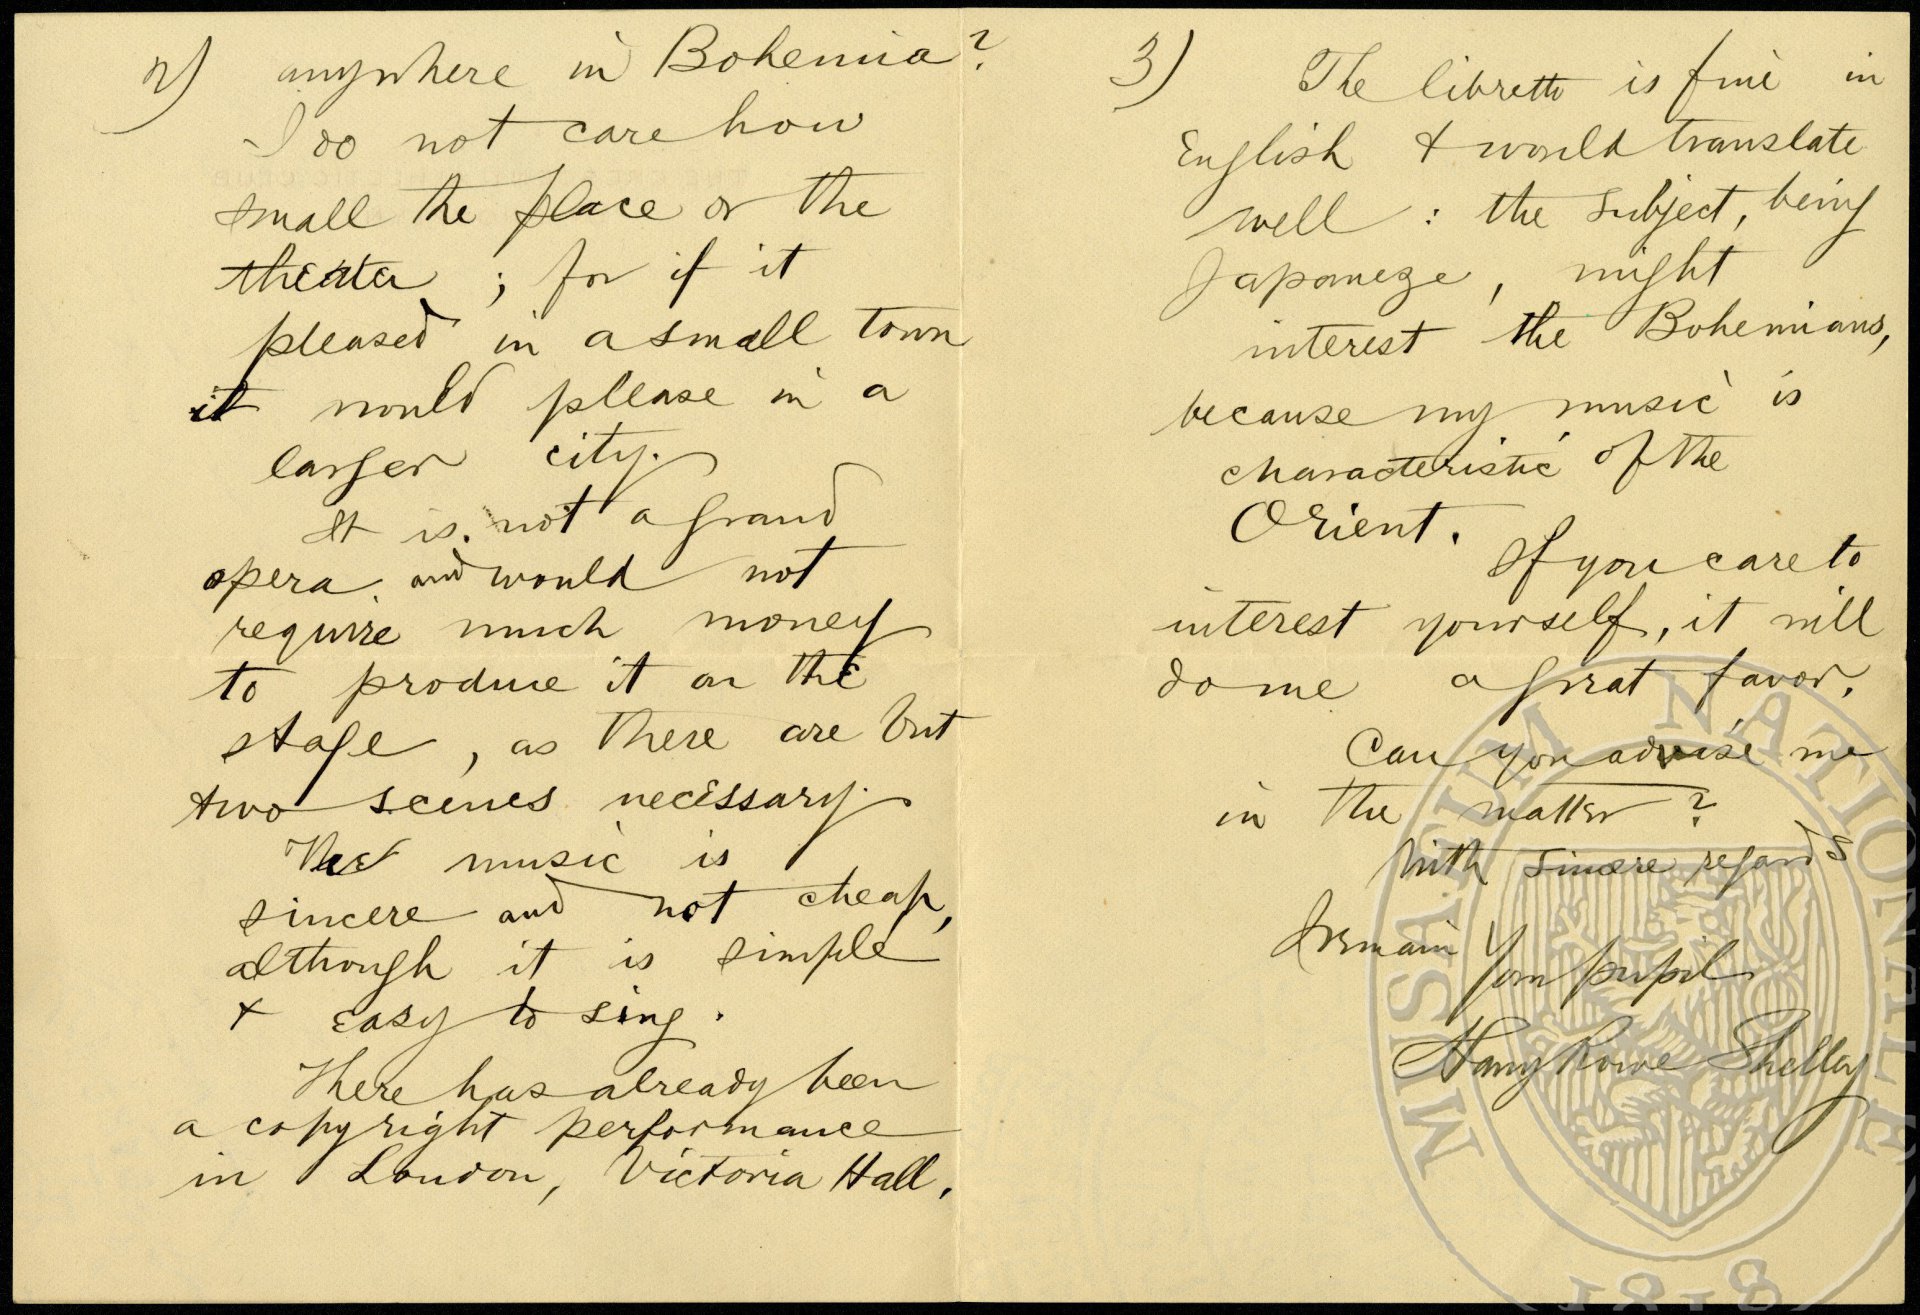 2) anywhere in Bohemia?
I do not care how
small the place or the
theater ; for if it
pleased in a small town
it would please in a
larger city.
It is not a grand
opera and would not
require much money
to produce it on the
stage, as there are but
two scenes necessary.
The music is
sincere and not cheap,
although it is simple
& easy to sing.
There has already been
a copyright performance
in London, Victoria Hall.
3) The libretto is fine in
English & would translate
well : the subject, being
Japaneze, might
interest the Bohemians,
because my music is
characteristic of the
Orient.
If you care to
interest yourself, it will
do me a great favor.
Can you advise me
in the matter?
With sincere regards
I remain
Your pupil
Harry Rowe Shelley
MUSAEUM NATIONALE
1818